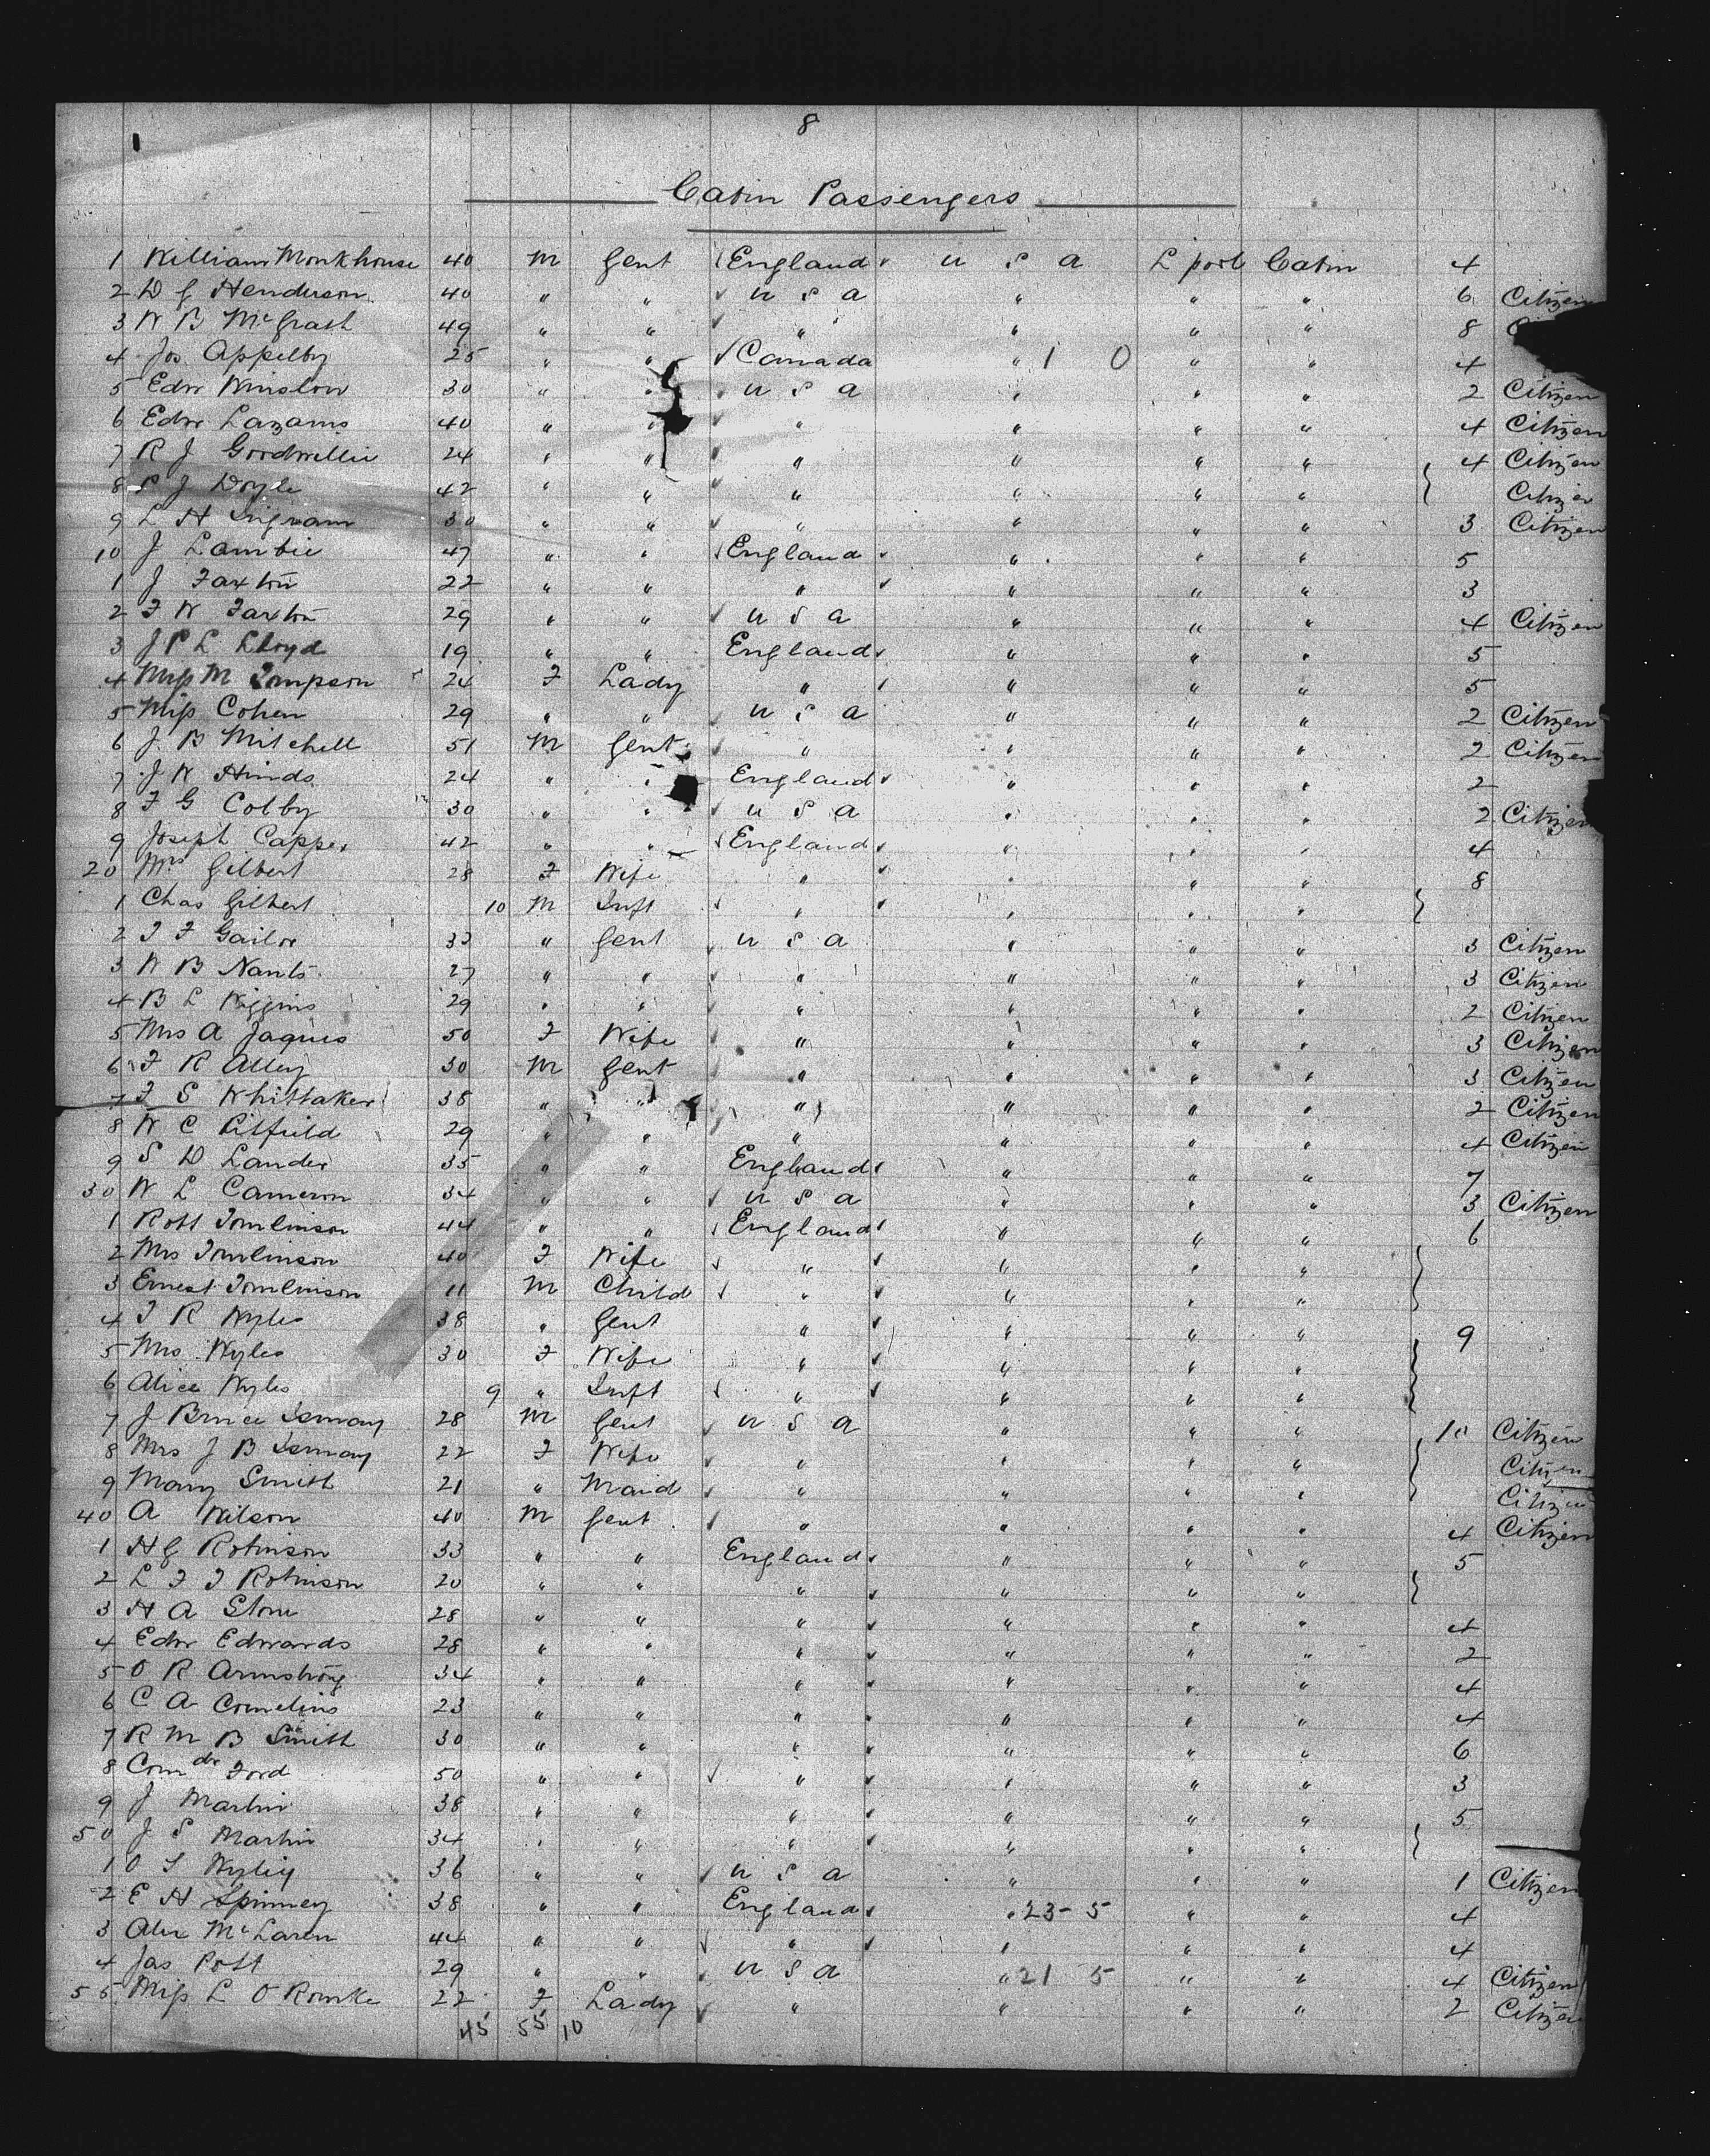 8
Cabin Passengers
1 William Monkhouse 40 M Gent England U S A L'pool Cabin 4
2 D G Henderson 40 " " U S A " " " 6 Citizen
3 W B McGrath 49 " " " " " " 8
4 Jos Appelby 25 " " Canada " 1 0 " " 4
5 Edw Winslow 30 " " U S A " " " 2 Citizen
6 Edw Lazarus 40 " " " " " " 4 Citizen
7 R J Goodwillie 24 " " " " " " 4 Citizen
8 P J Doyle 42 " " " " " " } Citizen
9 L H Ingram 30 " " " " " " 3 Citizen
10 J Lambie 47 " " England " " " 5
1 J Faxton 22 " " " " " " 3
2 F W Faxton 29 " " U S A " " " 4 Citizen
3 J P L Lloyd 19 " " England " " " 5
4 Miss M Simpson 24 F Lady " " " " 5
5 Miss Cohen 29 " " U S A " " " 2 Citizen
6 J B Mitchell 51 M Gent " " " " 2 Citizen
7 J W Hinds 24 " " England " " " 2
8 F G Colby 30 " " U S A " " " 2 Citizen
9 Joseph Capper 42 " " England " " " 4
20 Mrs Gilbert 28 F Wife " " " " 8
1 Chas Gilbert 10 M Inft " " " " }
2 T F Gailor 33 " Gent U S A " " " 3 Citizen
3 W B Nants 27 " " " " " " 3 Citizen
4 B L Wiggins 29 " " " " " " 2 Citizen
5 Mrs A Jaques 50 F Wife " " " " 3 Citizen
6 F R Alley 30 M Gent " " " " 3 Citizen
7 F S Whittaker 38 " " " " " " 2 Citizen
8 W C Pitfield 29 " " " " " " 4 Citizen
9 S D Lander 35 " " England " " " 7
30 W L Cameron 34 " " U S A " " " 3 Citizen
1 Robt Tomlinson 44 " " England " " " 6
2 Mrs Tomlinson 40 F Wife " " " " }
3 Ernest Tomlinson 11 M Child " " " "
4 T R Wyles 38 " Gent " " " " 9
5 Mrs Wyles 30 F Wife " " " " }
6 Alice Wyles 9 " Inft " " " "
7 J Bruce Ismay 28 M Gent U S A " " " 10 Citizen
8 Mrs J B Ismay 22 F Wife " " " " } Citizen
9 Mary Smith 21 " Maid " " " " Citizen
40 A Wilson 40 M Gent " " " " 4 Citizen
1 H G Robinson 33 " " England " " " 5
2 L F T Robinson 20 " " " " " " }
3 H A Stone 28 " " " " " " 4
4 Edw Edwards 28 " " " " " " 2
5 O R Armstrong 34 " " " " " " 4
6 C A Cornelius 23 " " " " " " 4
7 R M B Smith 30 " " " " " " 6
8 Comdr Ford 50 " " " " " " 3
9 J Martin 38 " " " " " " 5
50 J S Martin 34 " " " " " " }
1 O S Wylie 36 " " U S A " " " 1 Citizen
2 E H Spinney 38 " " England " 23-5 " " 4
3 Alex McLaren 44 " " " " " " 4
4 Jas Pott 29 " " U S A " 21 5 " " 4 Citizen
55 Miss L O'Rourke 22 F Lady " " " " 2 Citizen
45 55 10